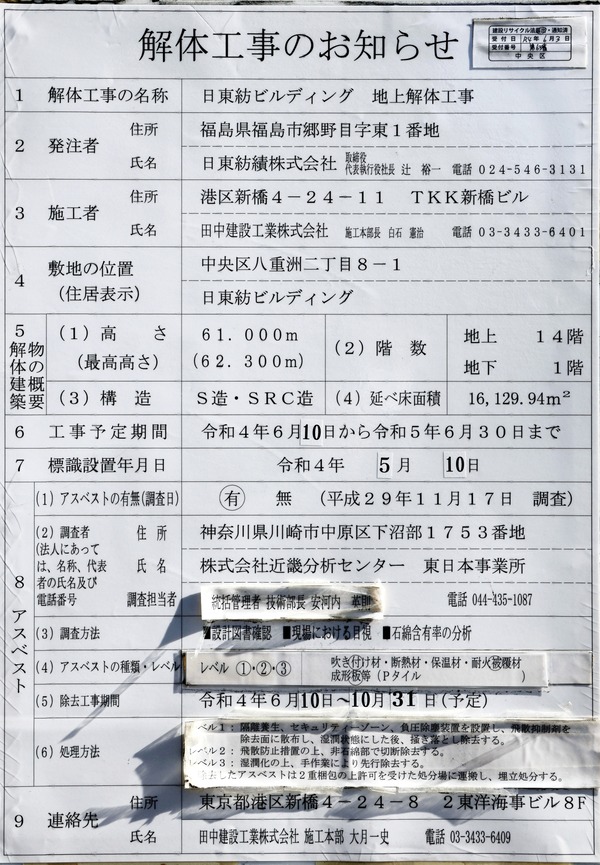 解体工事のお知らせ
建設リサイクル法届出・通知済
受付日
受付番号
中央区
1 解体工事の名称 日東紡ビルディング 地上解体工事
2 発注者 住所 福島県福島市郷野目字東1番地
氏名 日東紡績株式会社 取締役 代表執行役社長 辻 裕一 電話 024-546-3131
3 施工者 住所 港区新橋4-24-11 TKK新橋ビル
氏名 田中建設工業株式会社 施工本部長 白石 憲治 電話 03-3433-6401
4 敷地の位置 中央区八重洲二丁目8-1
(住居表示) 日東紡ビルディング
5 解体建築物の概要
(1)高さ 61.000m
(最高高さ) (62.300m)
(2)階数 地上 14階
地下 1階
(3)構造 S造・SRC造 (4)延べ床面積 16,129.94m²
6 工事予定期間 令和4年6月10日から令和5年6月30日まで
7 標識設置年月日 令和4年 5月 10日
8 アスベスト
(1)アスベストの有無(調査日) 有 無 (平成29年11月17日 調査)
(2)調査者 住所 神奈川県川崎市中原区下沼部1753番地
(法人にあっては、名称、代表者の氏名及び電話番号 氏名 株式会社近畿分析センター 東日本事業所
調査担当者 統括管理者 技術部長 安河内 電話 044-435-1087
(3)調査方法 ■設計図書確認 ■現場における目視 ■石綿含有率の分析
(4)アスベストの種類・レベル レベル ①・②・③ 吹き付け材・断熱材・保温材・耐火被覆材
成形板等(Pタイル )
(5)除去工事期間 令和4年6月10日~10月31日(予定)
(6)処理方法 ベル1:隔離養生、セキュリティーゾーン、負圧除塵装置を設置し、飛散抑制剤を
除去面に散布し、湿潤状態にした後、掻き落とし除去する。
レベル2:飛散防止措置の上、非石綿部で切断除去する。
レベル3:湿潤化の上、手作業により先行除去する。
したアスベストは2重梱包の上許可を受けた処分場に運搬し、埋立処分する。
9 連絡先 住所 東京都港区新橋4-24-8 2東洋海事ビル8F
氏名 田中建設工業株式会社 施工本部 大月一史 電話 03-3433-6409